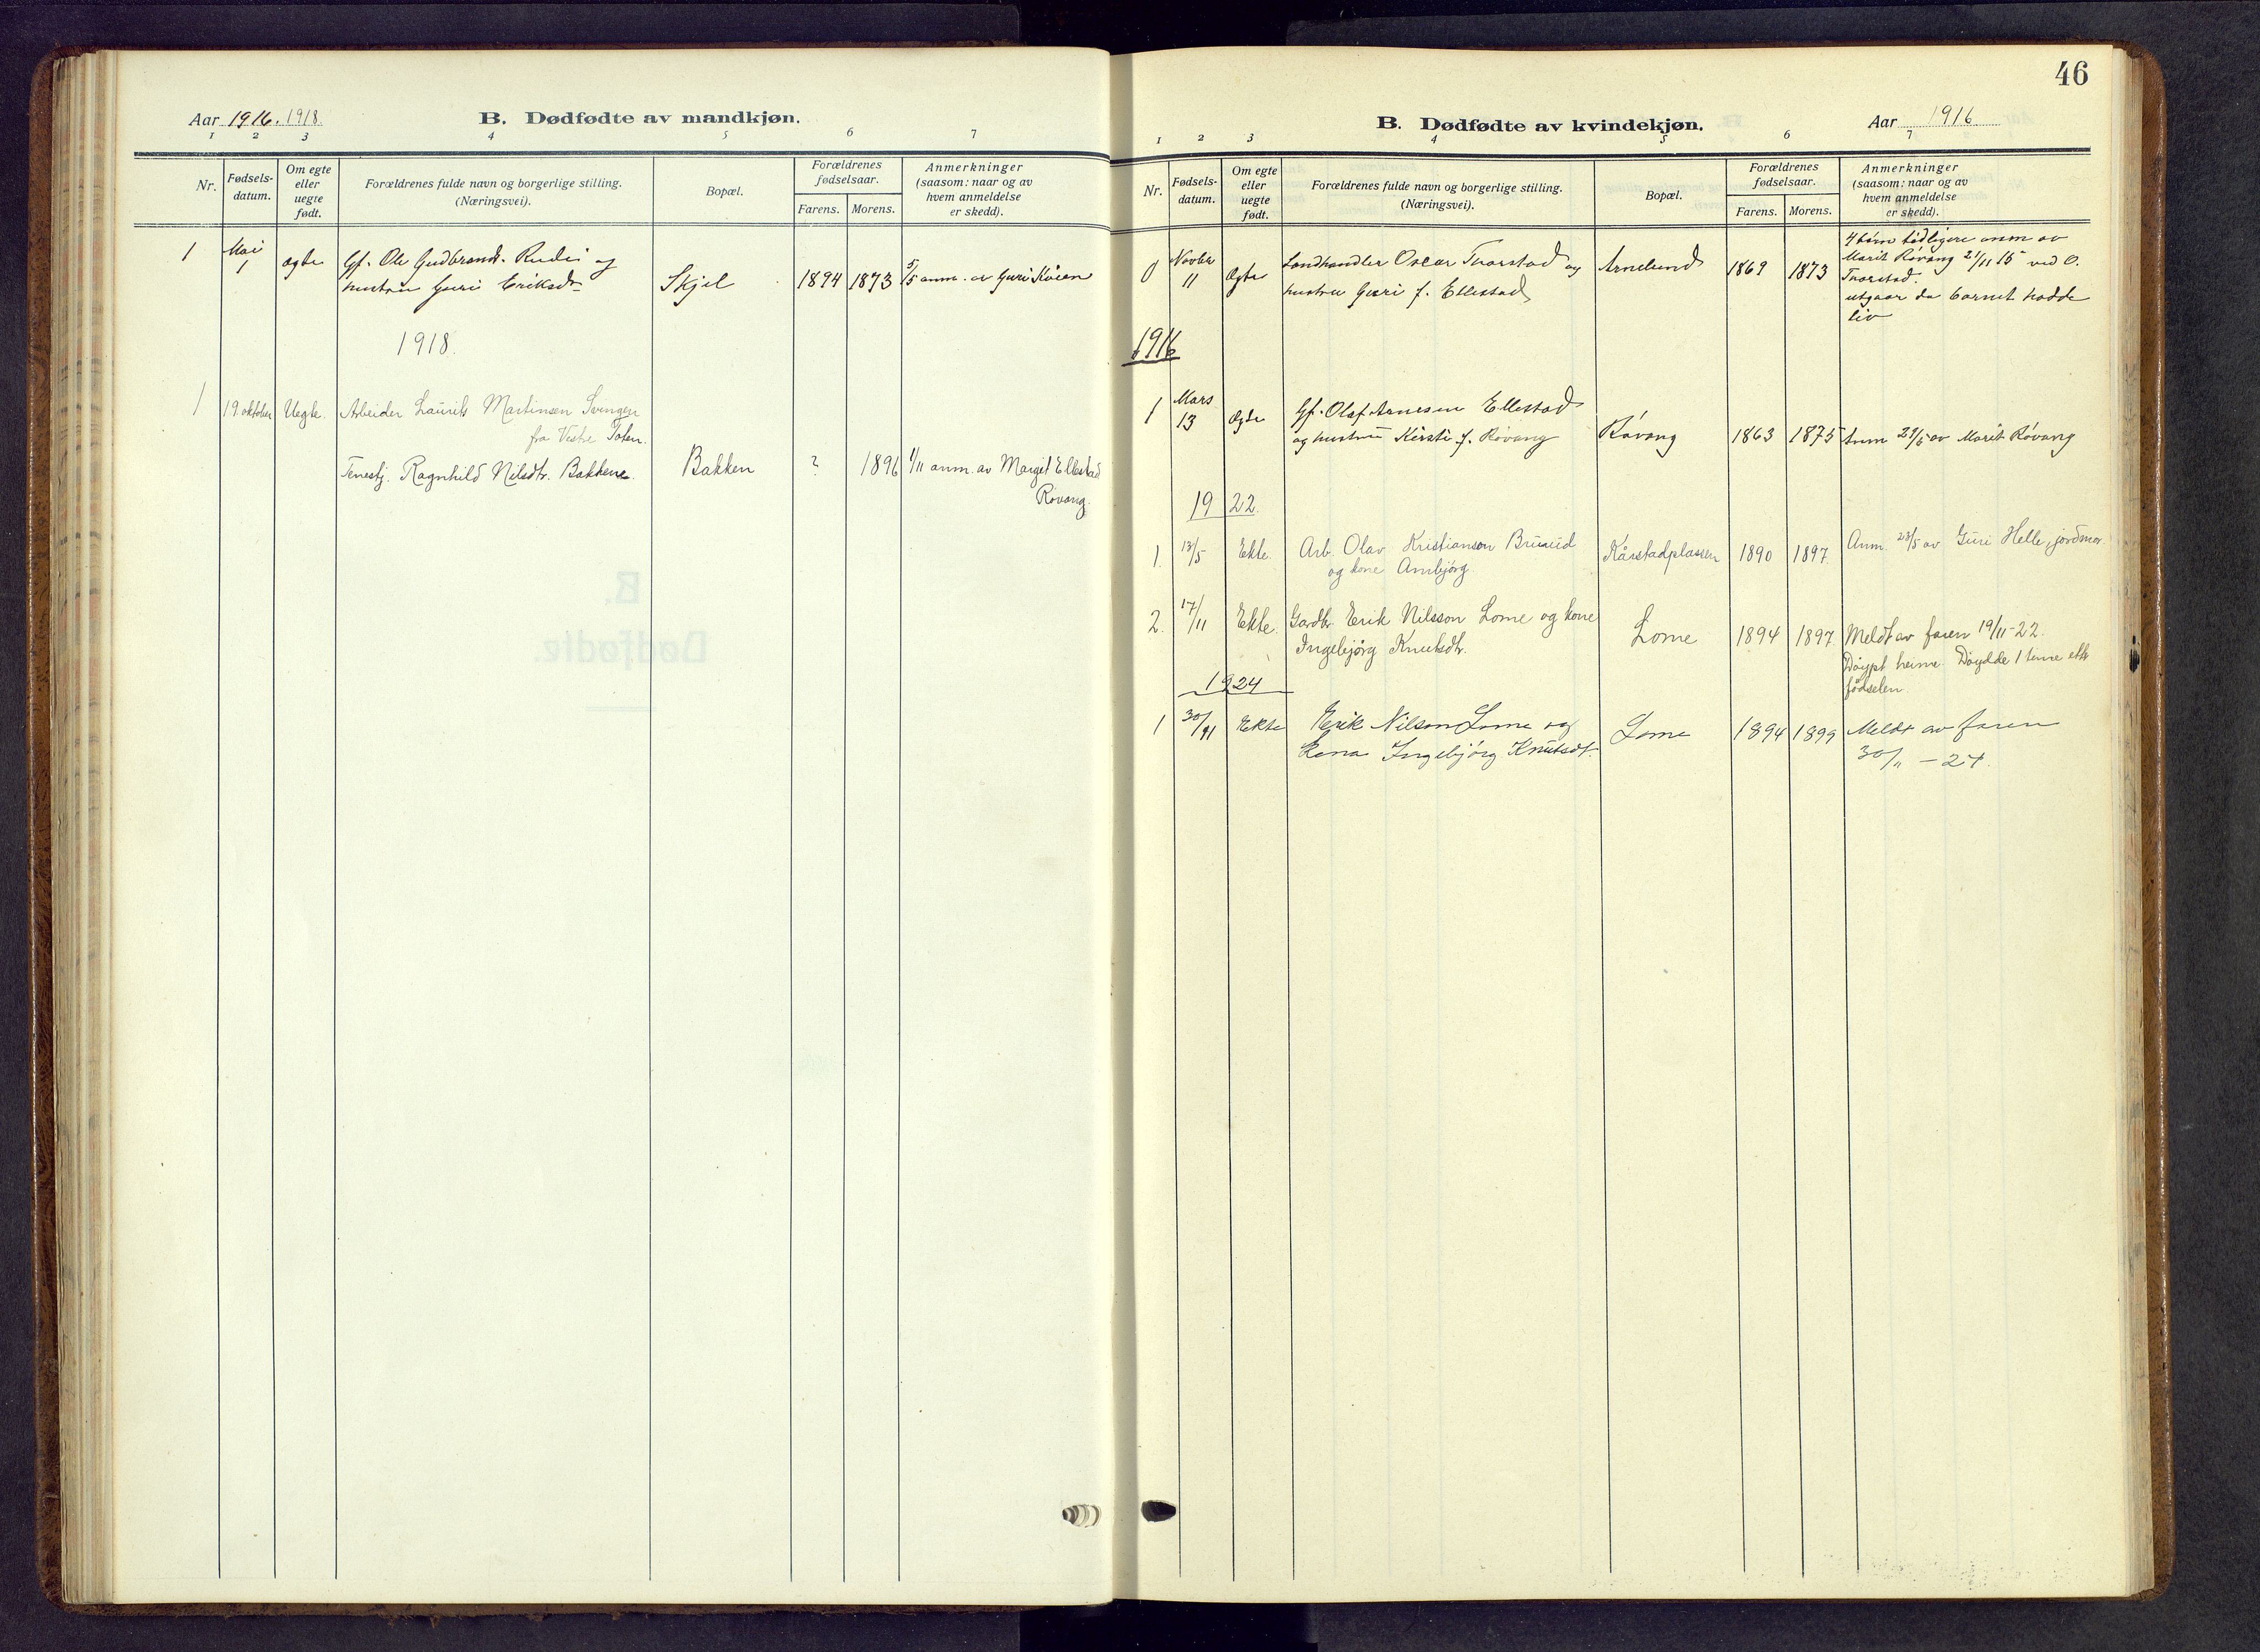 46
Aar 1916. 1918.
B. Dødfødte av mandkjøn.
1 2 3 4 5 6 7
Nr.
Fødsels-
datum.
Om egte
eller
uegte
født.
Forældrenes fulde navn og borgerlige stilling.
(Næringsvei).
Bopæl.
Forældrenes
fødselsaar.
Farens. Morens.
Anmerkninger
(saasom: naar og av
hvem anmeldelse
er skedd).
1 Mai
1 Ægte Gf. Ole Gudbrands. Rudi og
hustru Guri Eriksdr Skjel 1894 1873 5/5 anm. av Guri Kvien
1918.
1 19 oktober Uegte. Arbeider Laurits Martinsen Svingen
fra Vestre Toten.
Tenestj. Ragnhild Nilsdtr. Bakkene. Bakken ? 1896 1/11 anm. av Margit Ellestad
Røvang.
B.
Dødfødte.
B. Dødfødte av kvindekjøn.
Aar 1916
1 2 3 4 5 6 7
Nr.
Fødsels-
datum.
Om egte
eller
uegte
født.
Forældrenes fulde navn og borgerlige stilling.
(Næringsvei).
Bopæl.
Forældrenes
fødselsaar.
Farens. Morens.
Anmerkninger
(saasom: naar og av
hvem anmeldelse
er skedd).
0 Novbr
11 Ægte Landhandler Oscar Tvarstad og
hustru Guri f. Ellestad Arnelund 1869 1873
4 børn tidligere anm av
Marit Røvang 21/11 15 ved O.
Tvarstad.
utgaar da barnet hadde
liv
1916
1 Mars
13 Ægte Gf. Olaf Arnesen Ellestad
og hustru Kirsti f. Røvang Røvang 1863 1875 Anm 29/5 av Marit Røvang
1922.
1. 13/5 Ekte. Arb. Olav Kristiansen Brusud
og kone Ambjørg Kårstadplassen 1890 1897. Anm. 23/5 av Guri Helle, jordmor.
2. 17/11 Ekte. Gardbr Erik Nilsson Lome og kone
Ingebjørg Knutsdtr. Lome 1894 1897 Meldt av faren 19/11-22.
Døypt heime. Døydde 1 time ette
fødselen
1924
1 30/11 Ekte Erik Nilson Lome og
kona Ingebjørg Knutsdt. Lome 1894 1899 Meldt av faren
30/11 - 24.